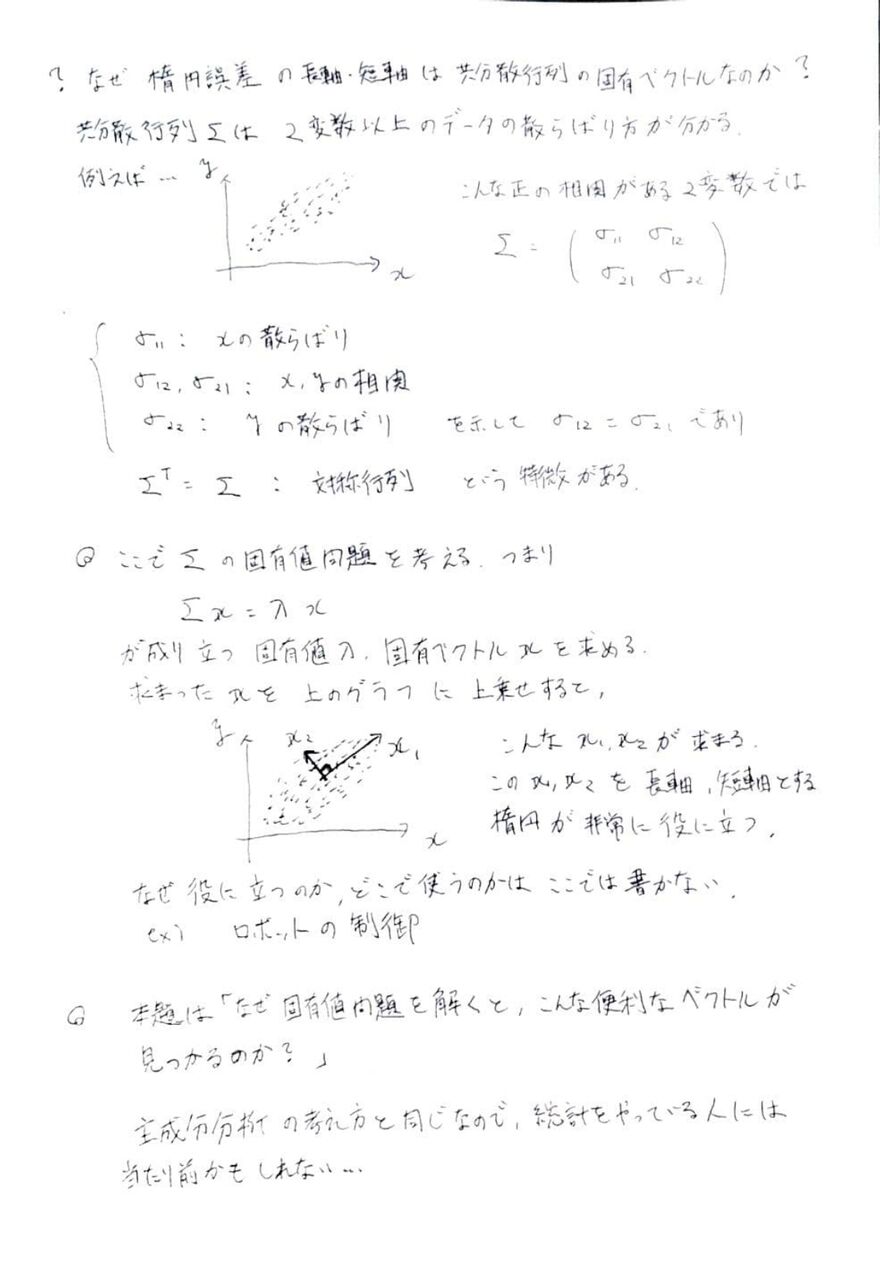 ? なぜ 楕円誤差 の 長軸・短軸 は 共分散行列 の固有ベクトルなのか ?
共分散行列 Σ は 2変数以上のデータの散らばり方が分かる.
例えば …
y
x
こんな正の相関がある2変数では
Σ = ( σ11 σ12
σ21 σ22 )
σ11 : xの散らばり
σ12, σ21 : x, yの相関
σ22 : yの散らばり を示して σ12 = σ21 であり
Σ^T = Σ : 対称行列 という 特徴がある.
ここで Σ の固有値問題を考える. つまり
Σx = λx
が成り立つ 固有値λ, 固有ベクトルxを求める.
求まった xを 上のグラフ に 上乗せすると,
y
x2
x1
x
こんな x1, x2 が 求まる.
このx1, x2 を 長軸, 短軸とする
楕円が 非常に役に立つ.
なぜ 役に立つのか, どこで使うのかは ここでは書かない.
ex) ロボットの制御
本題は「なぜ 固有値問題を解くと, こんな便利なベクトルが
見つかるのか? 」
主成分分析 の考え方と同じなので, 統計をやっている人には
当たり前かもしれない…